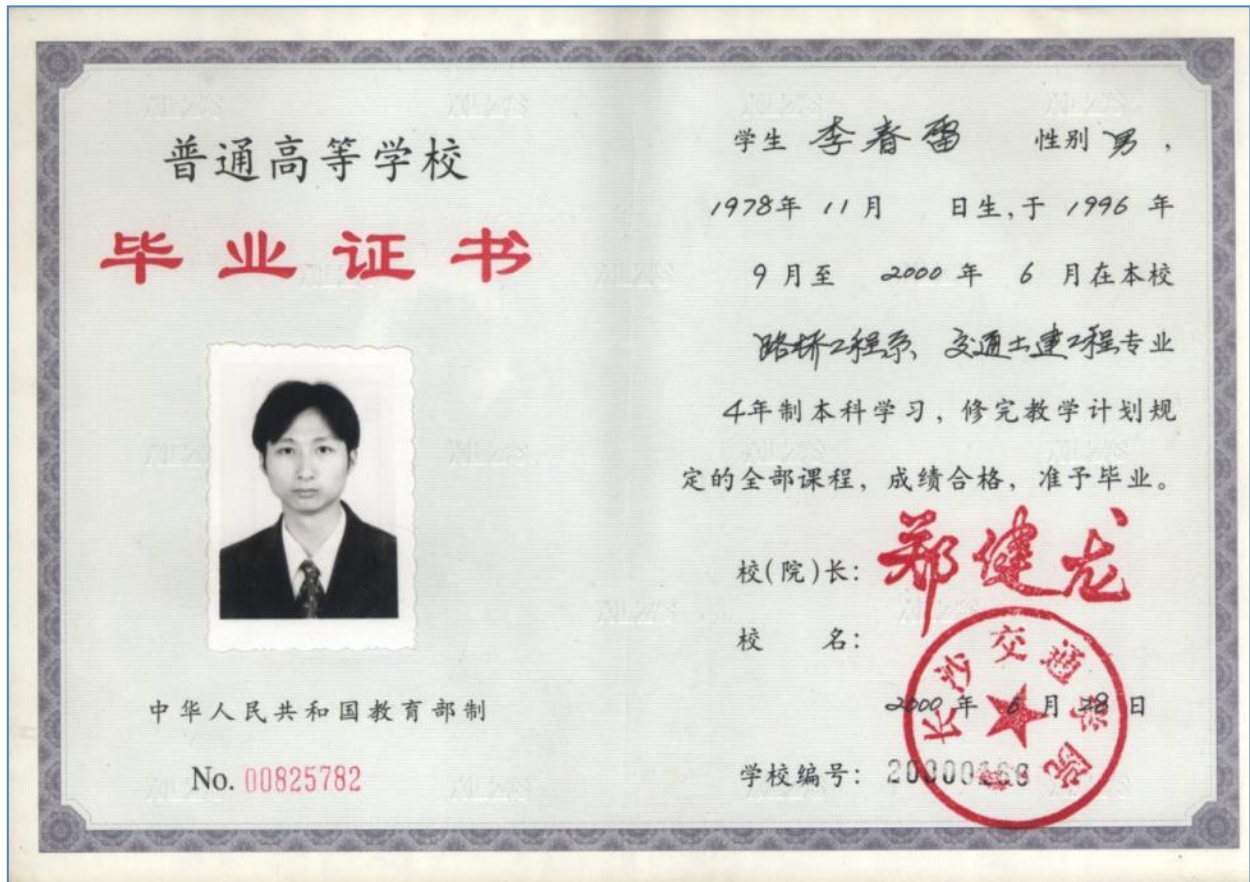 普通高等学校
毕业证书
中华人民共和国教育部制
No. 00825782
学生 李春雷 性别 男，
1978年 11月 日生,于 1996 年
9 月至 2000 年 6 月在本校
路桥工程系、交通土建工程专业
4年制本科学习，修完教学计划规
定的全部课程，成绩合格，准予毕业。
校(院)长: 郑健龙
校 名:
长沙交通学院
2000 年 6 月 28 日
学校编号: